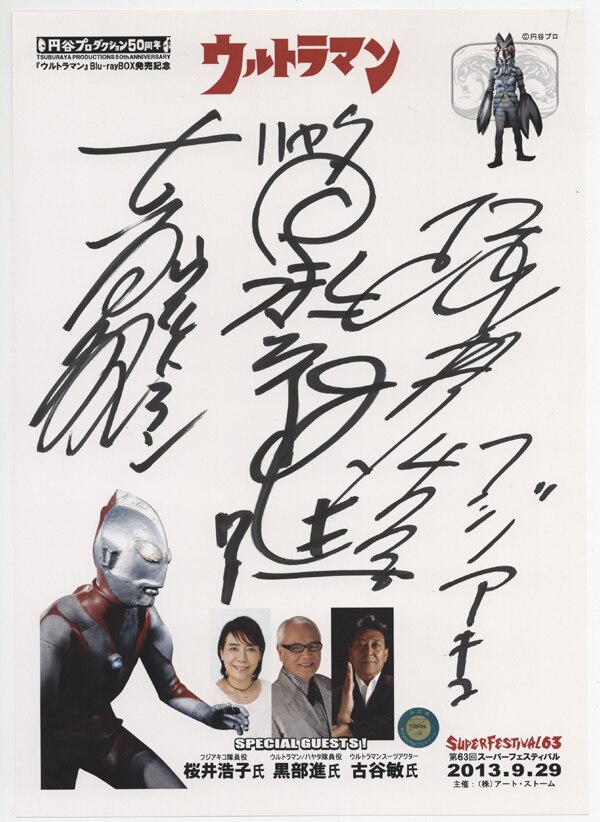 円谷プロダクション50周年
TSUBURAYA PRODUCTIONS 50th ANNIVERSARY
『ウルトラマン』Blu-rayBOX発売記念
ウルトラマン
©円谷プロ
ハヤタ
黒部進
フジアキコ
SPECIAL GUESTS!
フジアキコ隊員役
桜井浩子氏
ウルトラマン/ハヤタ隊員役
黒部進氏
ウルトラマンスーツアクター
古谷敏氏
SUPERFESTIVAL63
第63回スーパーフェスティバル
2013.9.29
主催：(株)アート・ストーム